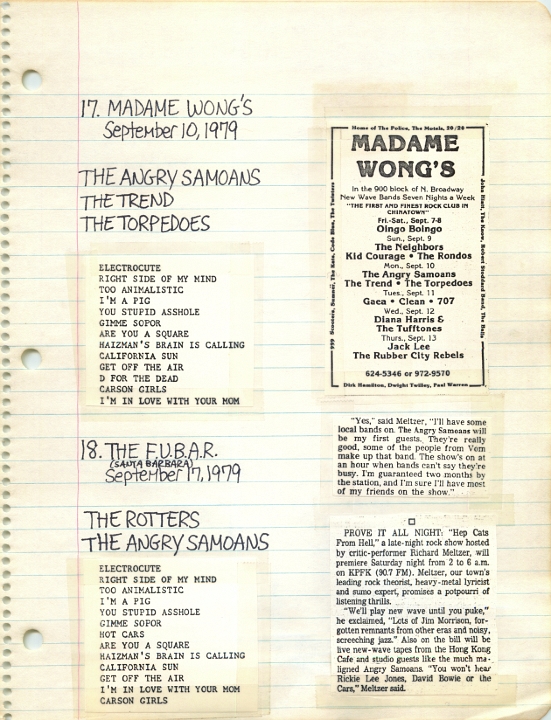 17. MADAME WONG'S
September 10, 1979
THE ANGRY SAMOANS
THE TREND
THE TORPEDOES
ELECTROCUTE
RIGHT SIDE OF MY MIND
TOO ANIMALISTIC
I'M A PIG
YOU STUPID ASSHOLE
GIMME SOPOR
ARE YOU A SQUARE
HAIZMAN'S BRAIN IS CALLING
CALIFORNIA SUN
GET OFF THE AIR
D FOR THE DEAD
CARSON GIRLS
I'M IN LOVE WITH YOUR MOM
18. THE F.U.B.A.R.
(SANTA BARBARA)
September 17, 1979
THE ROTTERS
THE ANGRY SAMOANS
ELECTROCUTE
RIGHT SIDE OF MY MIND
TOO ANIMALISTIC
I'M A PIG
YOU STUPID ASSHOLE
GIMME SOPOR
HOT CARS
ARE YOU A SQUARE
HAIZMAN'S BRAIN IS CALLING
CALIFORNIA SUN
GET OFF THE AIR
I'M IN LOVE WITH YOUR MOM
CARSON GIRLS
Home of The Police, The Motels, 20/20
MADAME
WONG'S
In the 900 block of N. Broadway
New Wave Bands Seven Nights a Week
"THE FIRST AND FINEST ROCK CLUB IN
CHINATOWN"
Fri.-Sat., Sept. 7-8
Oingo Boingo
Sun., Sept. 9
The Neighbors
Kid Courage • The Rondos
Mon., Sept. 10
The Angry Samoans
The Trend • The Torpedoes
Tues., Sept. 11
Gaea • Clean • 707
Wed., Sept. 12
Diana Harris &
The Tufftones
Thurs., Sept. 13
Jack Lee
The Rubber City Rebels
624-5346 or 972-9570
Dirk Hamilton, Dwight Twilley, Paul Warren
The Kats, Code Blue, The Twisters
John Hiatt, The Know, Robert Stoddard Band, The Heils
"Yes," said Meltzer, "I'll have some
local bands on. The Angry Samoans will
be my first guests. They're really
good, some of the people from Vom
make up that band. The show's on at
an hour when bands can't say they're
busy. I'm guaranteed two months by
the station, and I'm sure I'll have most
of my friends on the show."
PROVE IT ALL NIGHT: "Hep Cats
From Hell," a late-night rock show hosted
by critic-performer Richard Meltzer, will
premiere Saturday night from 2 to 6 a.m.
on KPFK (90.7 FM). Meltzer, our town's
leading rock theorist, heavy-metal lyricist
and sumo expert, promises a potpourri of
listening thrills.
"We'll play new wave until you puke,"
he exclaimed, "Lots of Jim Morrison, for-
gotten remnants from other eras and noisy,
screeching jazz." Also on the bill will be
live new-wave tapes from the Hong Kong
Cafe and studio guests like the much ma-
ligned Angry Samoans. "You won't hear
Rickie Lee Jones, David Bowie or the
Cars," Meltzer said.